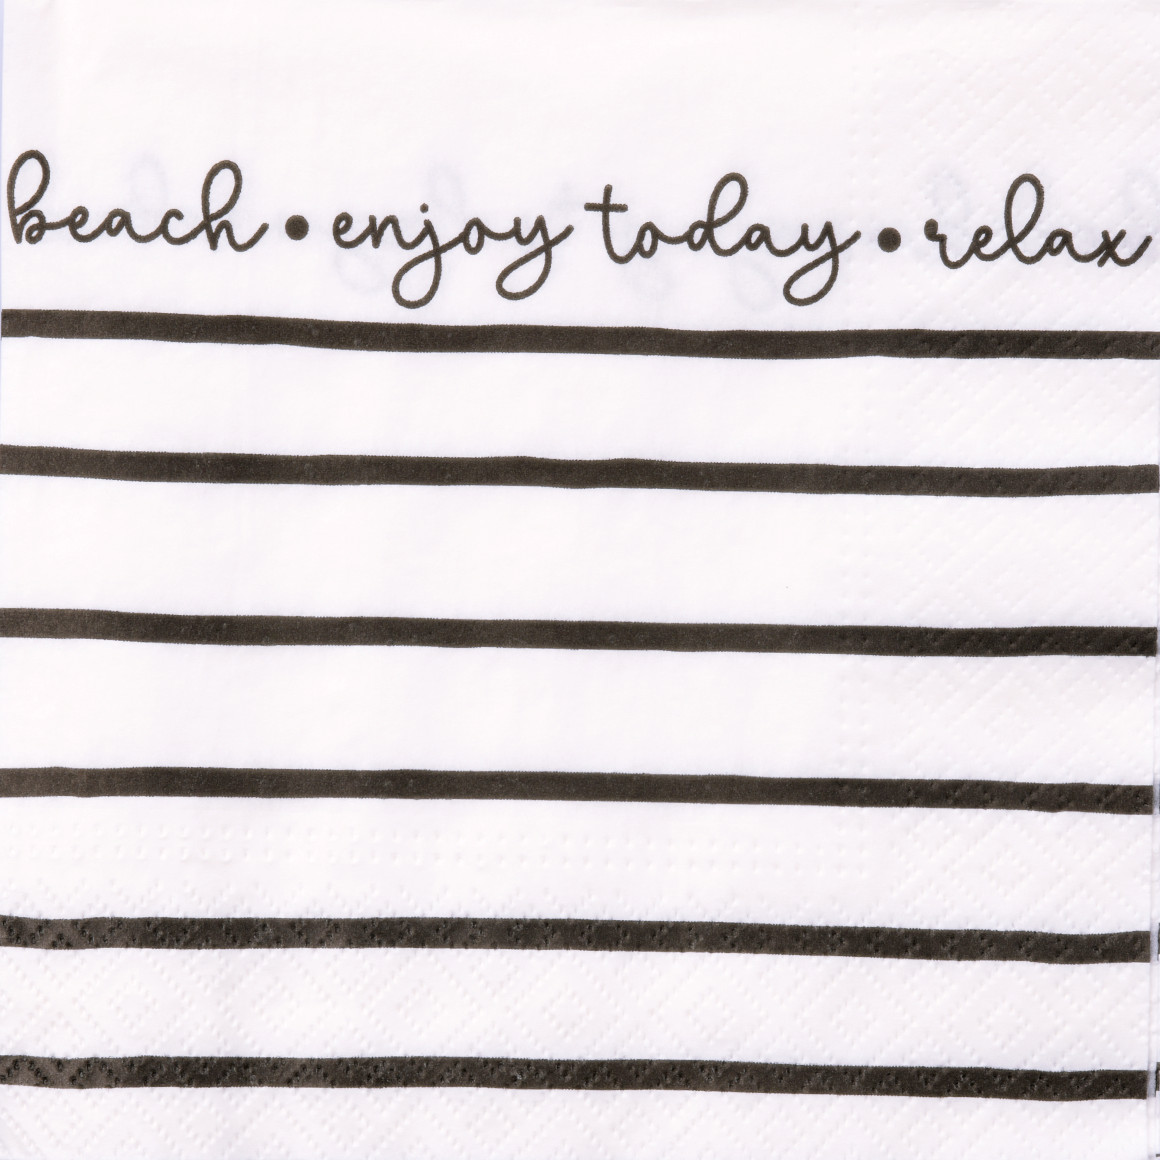 beach • enjoy today • relax